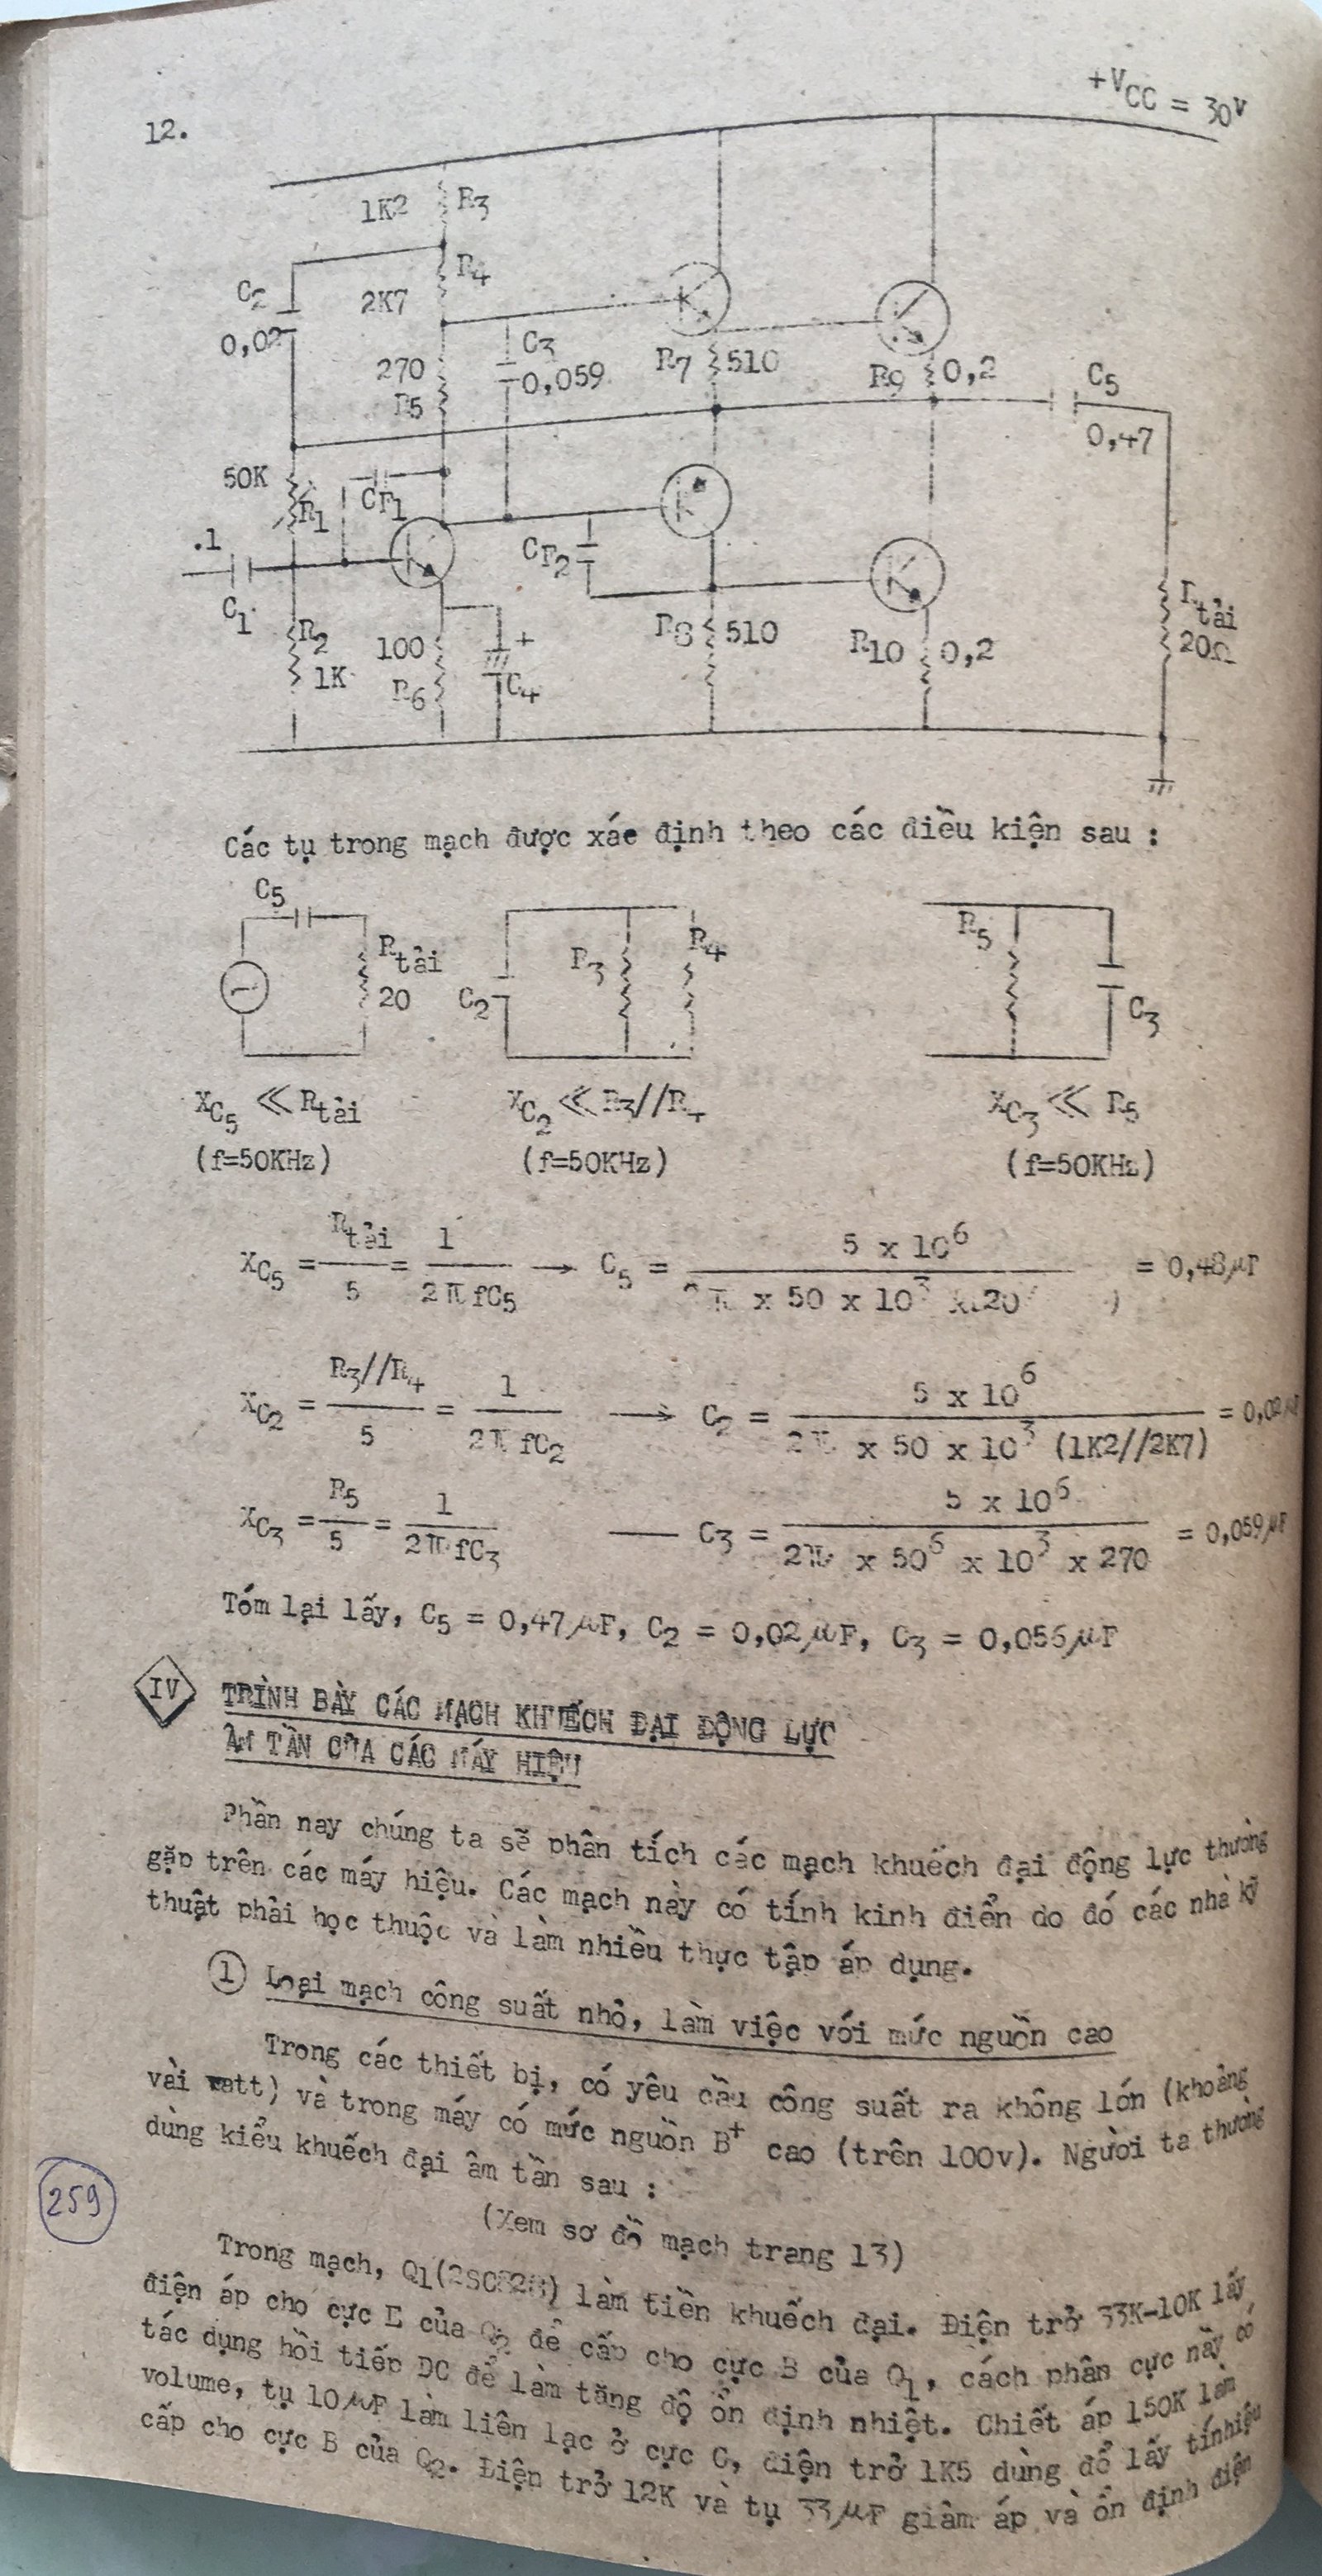 12.
+VCC = 30V
1K2 R3
R4
C2
2K7
0,02
C3
0,059
270
R5
R7 510
R9 0,2
C5
0,47
50K
R1
CF1
.1
C1
CF2
R2
1K
100
R6
+
C4
R8 510
R10 0,2
Rtải
20Ω
Các tụ trong mạch được xác định theo các điều kiện sau :
C5
Rtải
20
C2
R3
R4
R5
C3
XC5 ≪ Rtải
XC2 ≪ R3//R4
XC3 ≪ R5
(f=50KHz)
(f=50KHz)
(f=50KHz)
XC5 = Rtải/5 = 1/2π fC5 → C5 = 5 x 10⁶ / 2π x 50 x 10³ x 20 = 0,48μF
XC2 = R3//R4/5 = 1/2π fC2 → C2 = 5 x 10⁶ / 2π x 50 x 10³ (1K2//2K7) = 0,02μF
XC3 = R5/5 = 1/2π fC3 — C3 = 5 x 10⁶ / 2π x 50⁶ x 10³ x 270 = 0,059μF
Tóm lại lấy, C5 = 0,47μF, C2 = 0,02μF, C3 = 0,056μF
IV TRÌNH BÀY CÁC MẠCH KHUẾCH ĐẠI ĐỘNG LỰC
ÂM TẦN CỦA CÁC MÁY HIỆU
Phần nay chúng ta sẽ phân tích các mạch khuếch đại động lực thường
gặp trên các máy hiệu. Các mạch này có tính kinh điển do đó các nhà kỹ
thuật phải học thuộc và làm nhiều thực tập áp dụng.
1 Loại mạch công suất nhỏ, làm việc với mức nguồn cao
Trong các thiết bị, có yêu cầu công suất ra không lớn (khoảng
vài watt) và trong máy có mức nguồn B⁺ cao (trên 100v). Người ta thường
dùng kiểu khuếch đại âm tần sau :
(Xem sơ đồ mạch trang 13)
259
Trong mạch, Q1(2SC828) làm tiền khuếch đại. Điện trở 33K-10K lấy
điện áp cho cực E của Q2 để cấp cho cực B của Q1, cách phân cực này có
tác dụng hồi tiếp DC để làm tăng độ ổn định nhiệt. Chiết áp 150K làm
volume, tụ 10μF làm liên lạc ở cực C, điện trở 1K5 dùng để lấy tínhiệu
cấp cho cực B của Q2. Điện trở 12K và tụ 33μF giảm áp và ổn định điện